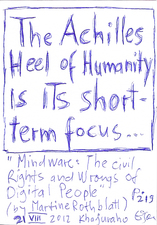 The Achilles
Heel of Humanity
is iTs short-
term focus...
"Mindware: The Civil
Rights and Wrongs of
Digital People" P. 219
(by Martine Rothblatt)
21 VIII 2012 Khajuraho